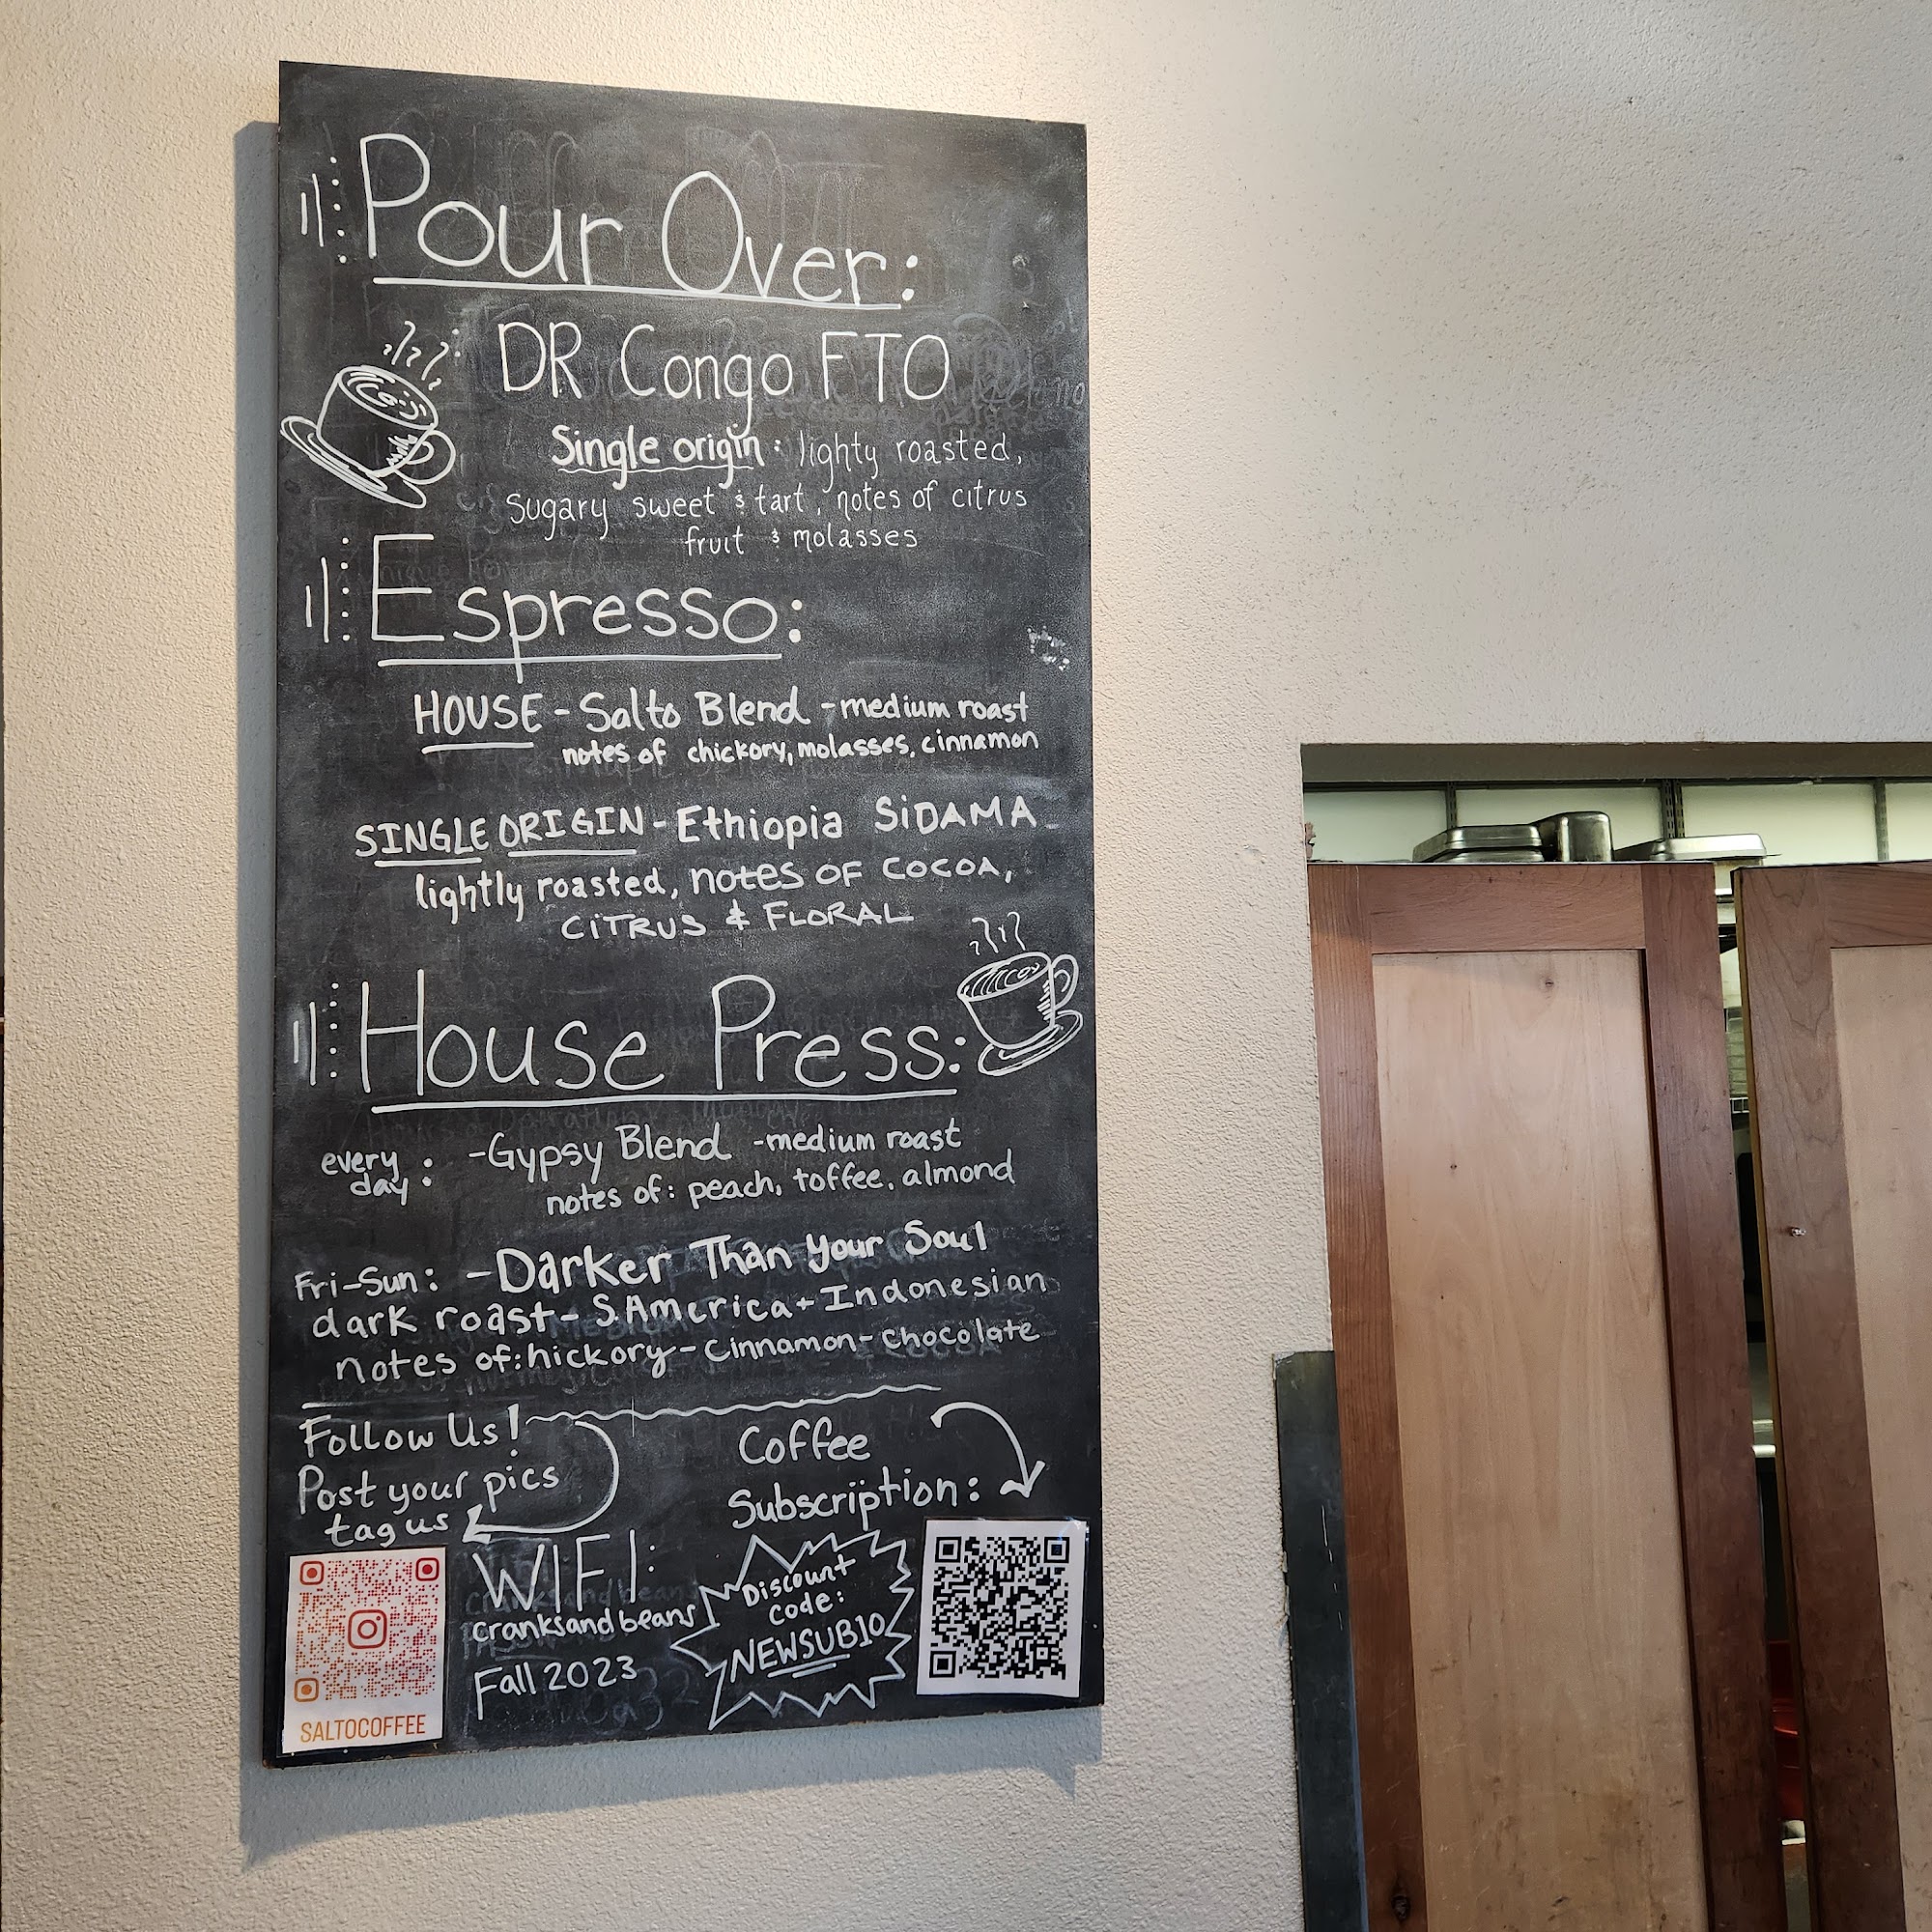 Pour Over:
DR Congo FTO
Single origin: lighty roasted,
Sugary sweet & tart, notes of citrus
fruit & molasses
Espresso:
HOUSE - Salto Blend - medium roast
notes of chickory, molasses, cinnamon
SINGLE ORIGIN - Ethiopia SiDAMA
lightly roasted, notes OF COCOA,
CiTRUS & FLORAL
House Press:
every day: - Gypsy Blend - medium roast
notes of: peach, toffee, almond
Fri-Sun: - Darker Than Your Soul
dark roast - S. America + Indonesian
notes of: hickory - Cinnamon - chocolate
Follow Us!
Post your pics
tag us
SALTOCOFFEE
WIFI:
cranksandbeans
Fall 2023
Coffee
Subscription:
Discount
code:
NEWSUB10